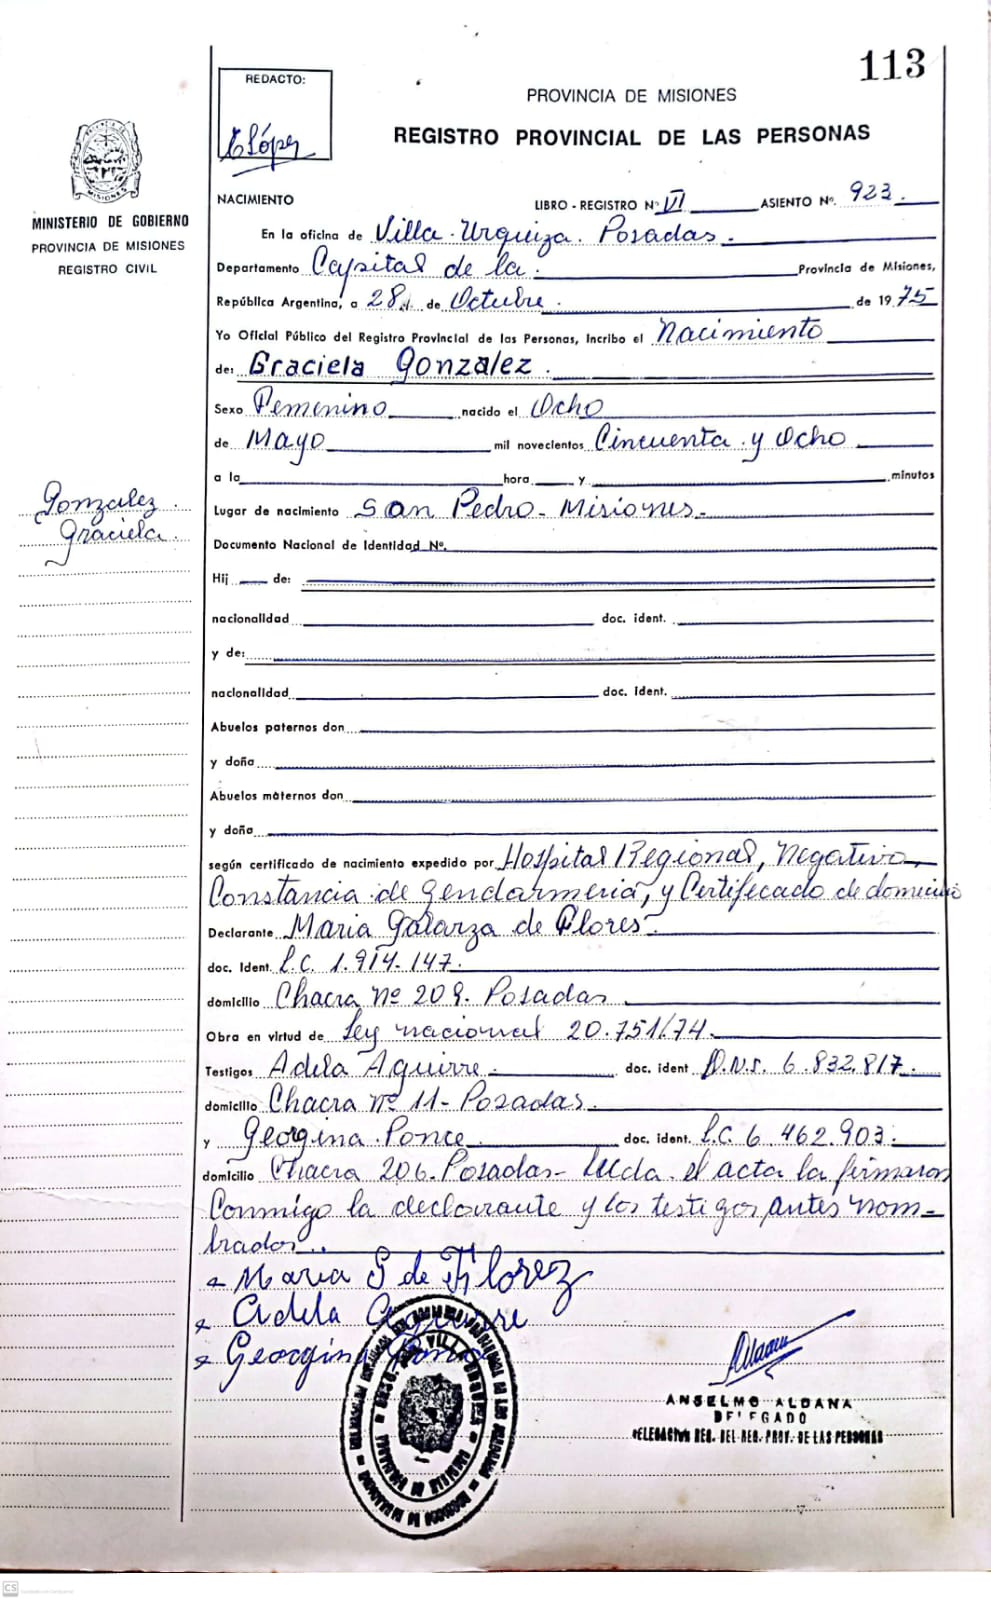 113
REDACTO:
López
PROVINCIA DE MISIONES
REGISTRO PROVINCIAL DE LAS PERSONAS
MISIONES
MINISTERIO DE GOBIERNO
PROVINCIA DE MISIONES
REGISTRO CIVIL
NACIMIENTO LIBRO - REGISTRO Nº VI ASIENTO Nº. 923.
En la oficina de Villa Urquiza. Posadas.
Departamento Capital de la. Provincia de Misiones,
República Argentina, a 28 de Octubre. de 1975
Yo Oficial Público del Registro Provincial de las Personas, Incribo el Nacimiento
de: Graciela Gonzalez.
Sexo Femenino nacido el Ocho
de Mayo mil novecientos Cincuenta y Ocho
a la hora y minutos
Gonzalez
Graciela
Lugar de nacimiento San Pedro - Misiones.
Documento Nacional de Identidad Nº.
Hij de:
nacionalidad doc. ident.
y de:
nacionalidad doc. Ident.
Abuelos paternos don
y doña
Abuelos maternos don
y doña
según certificado de nacimiento expedido por Hospital Regional, Negativo
Constancia de Gendarmeria, y Certificado de domicilio
Declarante Maria Galarza de Flores.
doc. Ident. L.C. 1.914.147.
domicilio Chacra Nº 209. Posadas
Obra en virtud de Ley nacional 20.751/74.
Testigos Adela Aguirre. doc. ident D.N.I. 6.832.817.
domicilio Chacra nº 11 - Posadas.
y Georgina Ponce doc. ident. L.C. 6.462.903.
domicilio Chacra 206. Posadas - Leida el acta la firmaron
Conmigo la declarante y los testigos antes nom-
brados.
Maria G de Florez
Adela Aguirre
Georgina Ponce
ANSELMO ALDANA
DELEGADO
DELEGACION REG. DEL REG. PROV. DE LAS PERSONAS
CS